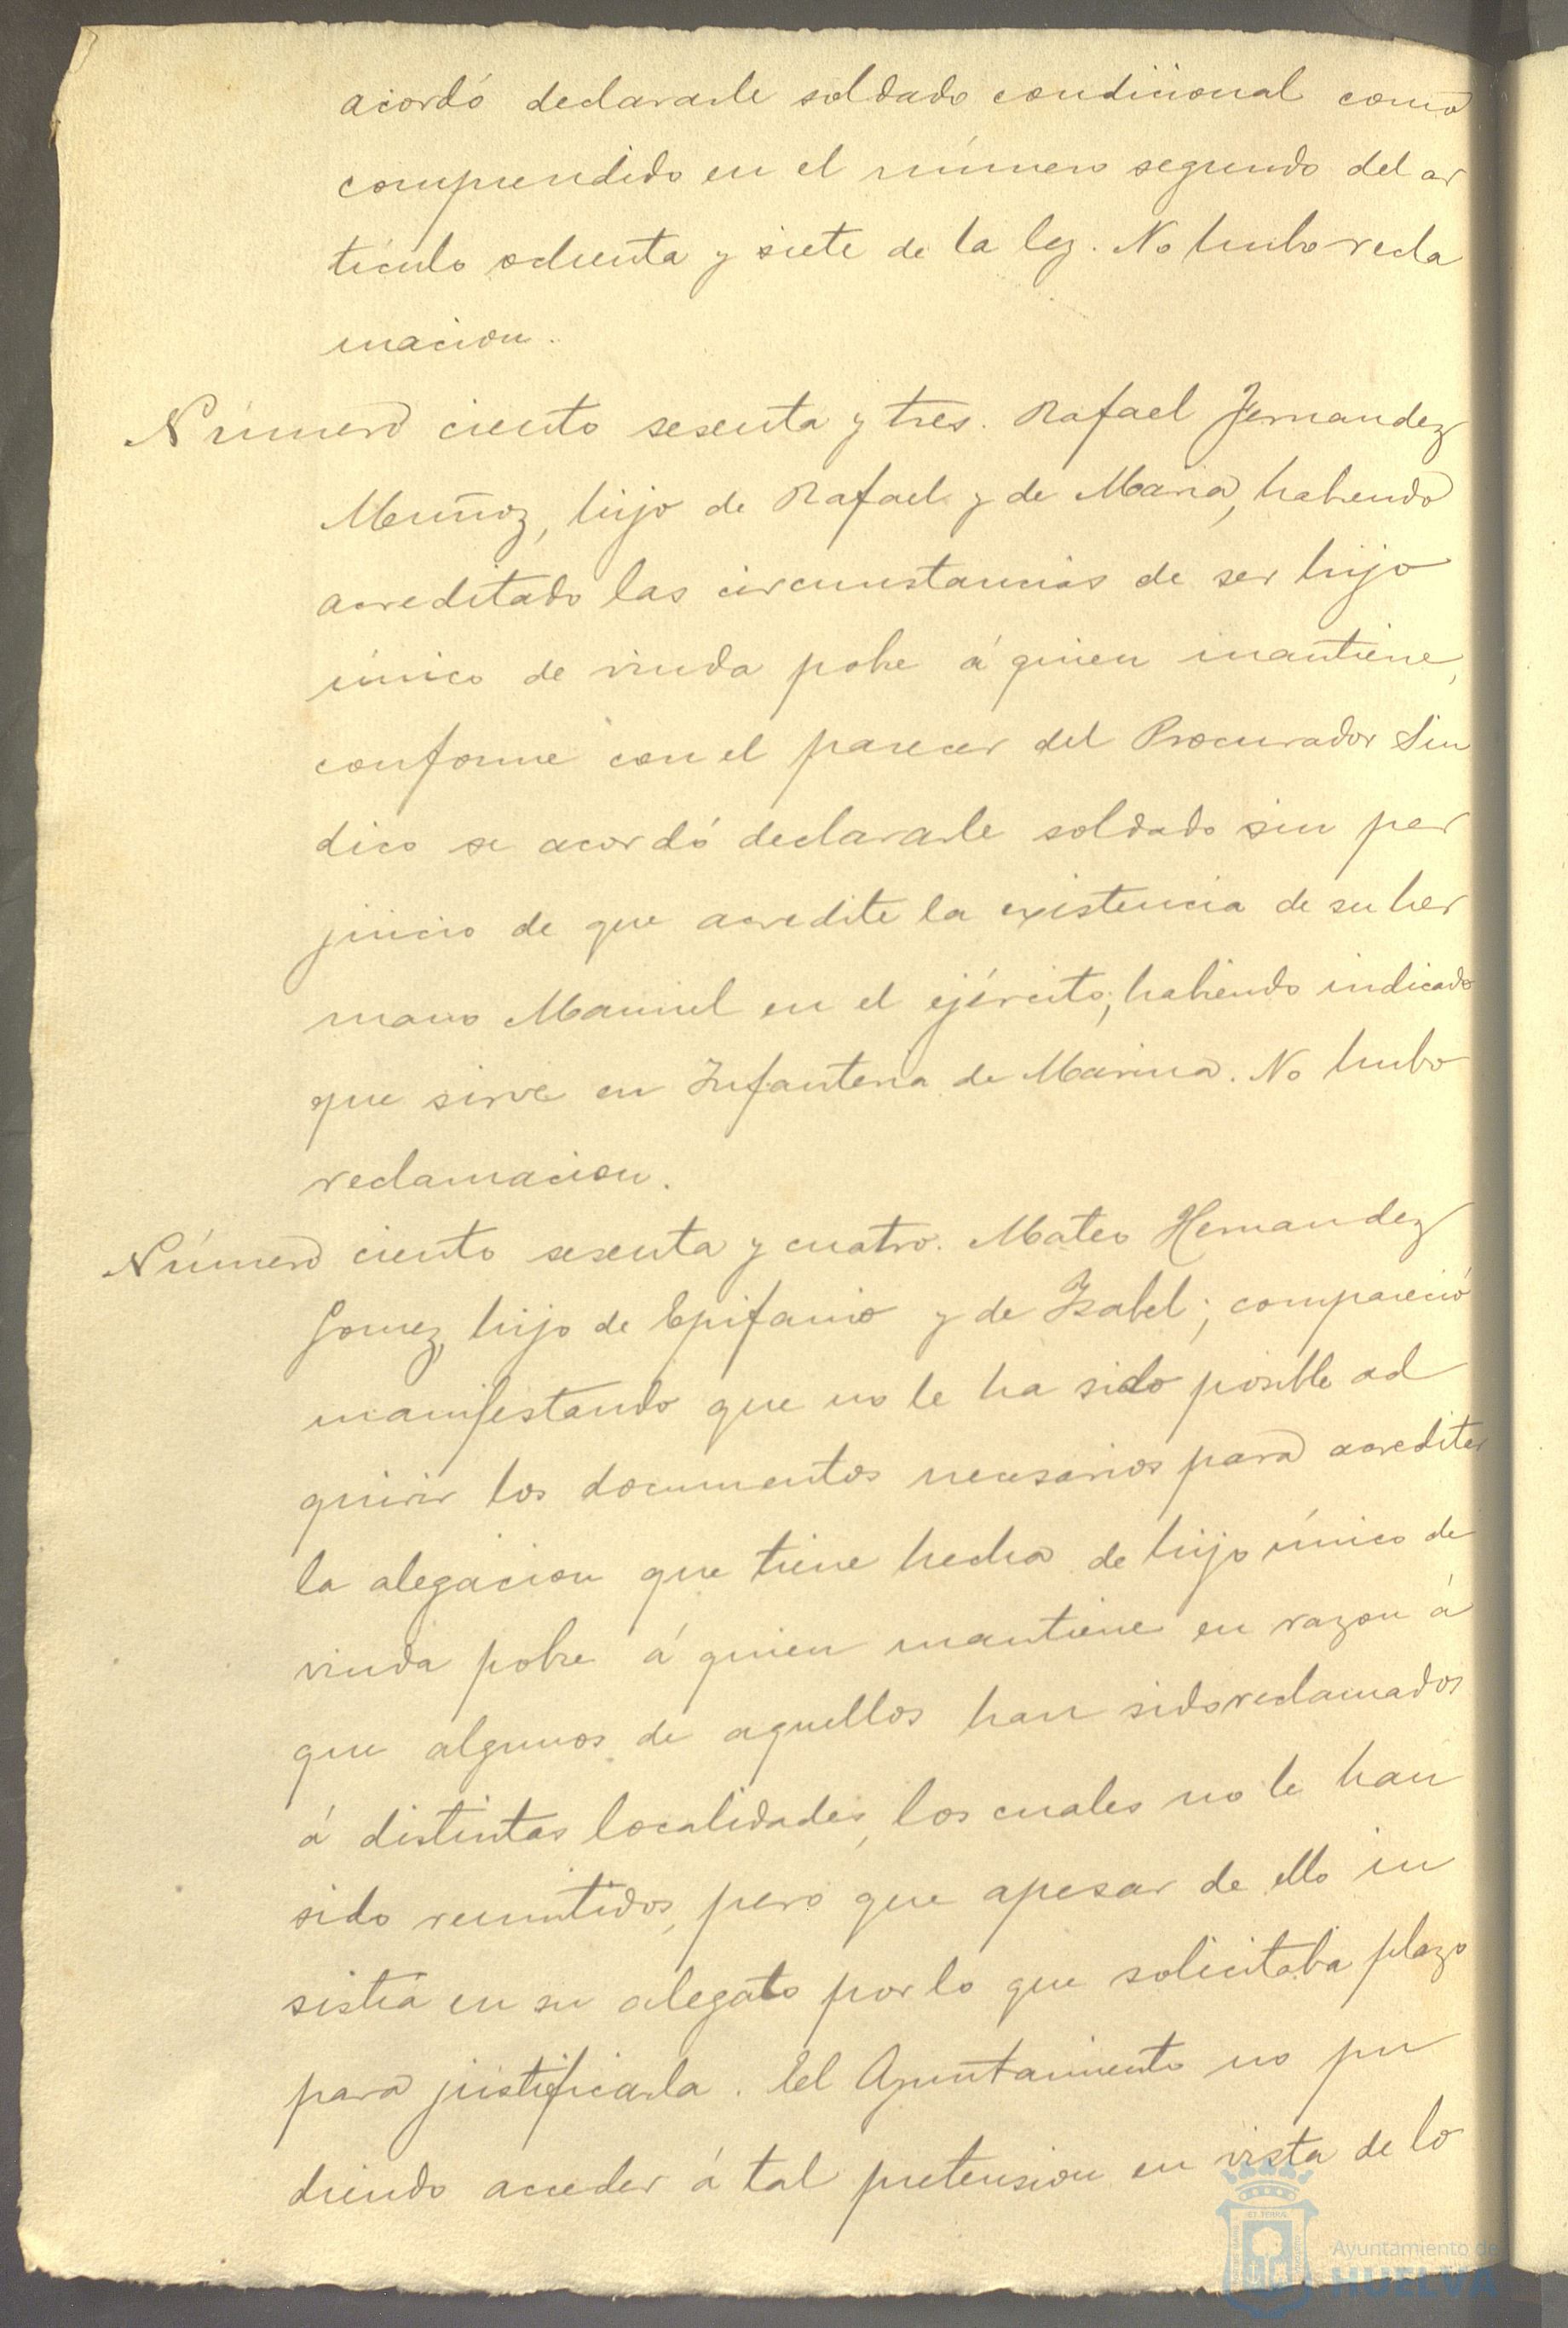 acordó declararle soldado condicional como
comprendido en el número segundo del ar
tículo ochenta y siete de la ley. No hubo recla
macion.
Número ciento sesenta y tres. Rafael Fernandez
Muñoz, hijo de Rafael y de Maria, habiendo
acreditado las circunstancias de ser hijo
único de viuda pobre á quien mantiene,
conforme con el parecer del Procurador Sin
dico se acordó declararle soldado sin per
juicio de que acredite la existencia de su her
mano Manuel en el ejército, habiendo indicado
que sirve en Infanteria de Marina. No hubo
reclamacion.
Número ciento sesenta y cuatro. Mateo Hernandez
Gomez, hijo de Epifanio y de Isabel; compareció
manifestando que no le ha sido posible ad
quirir los documentos necesarios para acreditar
la alegacion que tiene hecha de hijo único de
viuda pobre á quien mantiene en razon á
que algunos de aquellos han sido reclamados
á distintas localidades, los cuales no le han
sido remitidos, pero que apesar de ello in
sistia en su alegato por lo que solicitaba plazo
para justificarla. El Ayuntamiento no pu
diendo acceder á tal pretension en vista de lo
Ayuntamiento de
HUELVA